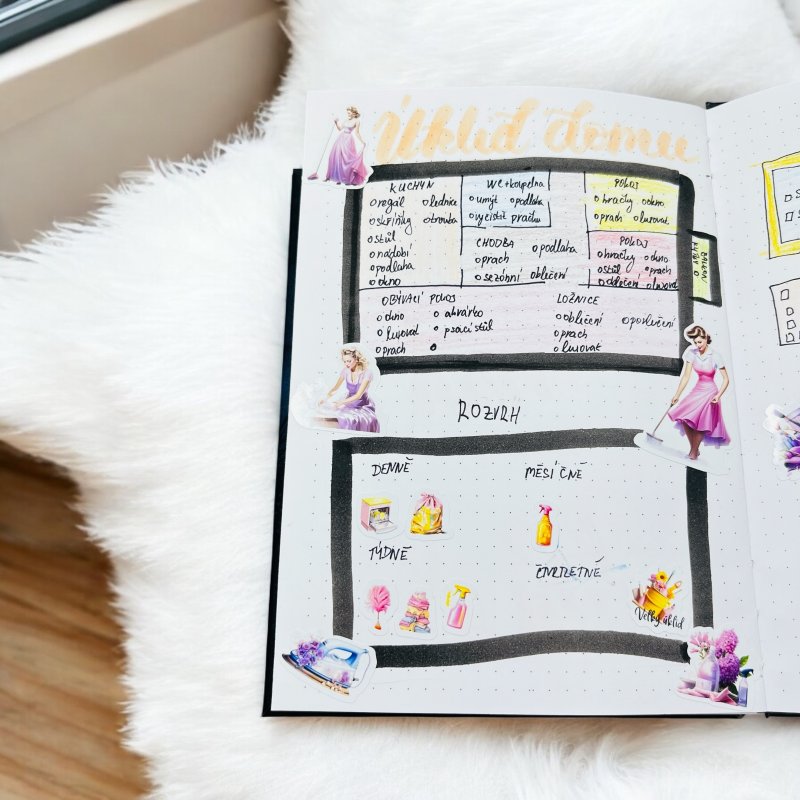 Úklid domu
KUCHYŇ
regál lednice
skříňky trouba
stůl
nádobí
podlaha
okno
WC + koupelna
umýt podlaha
vyčistit pračku
POKOJ
hračky okno
prach luxovat
CHODBA podlaha
prach
sezónní oblečení
POKOJ
hračky okno
stůl prach
oblečení luxovat
OBÝVACÍ POKOJ
okno akvárko
luxovat psací stůl
prach
LOŽNICE
oblečení povlečení
prach
luxovat
ROZVRH
DENNĚ
MĚSÍČNĚ
TÝDNĚ
ČTVRTLETNĚ
Velký úklid